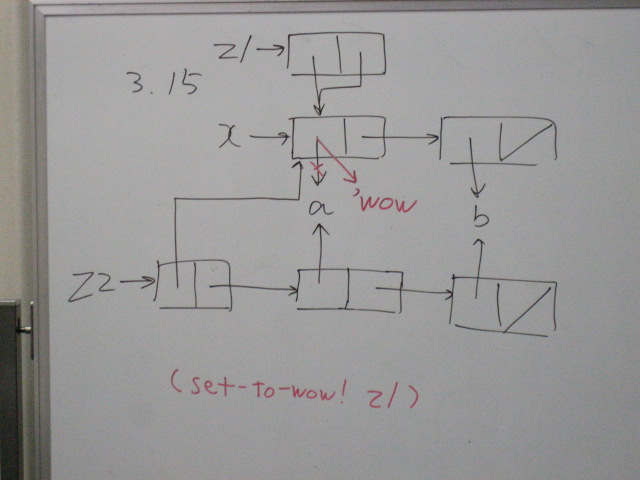 z1
3.15
x
a
'wow
b
z2
(set-to-wow! z1)